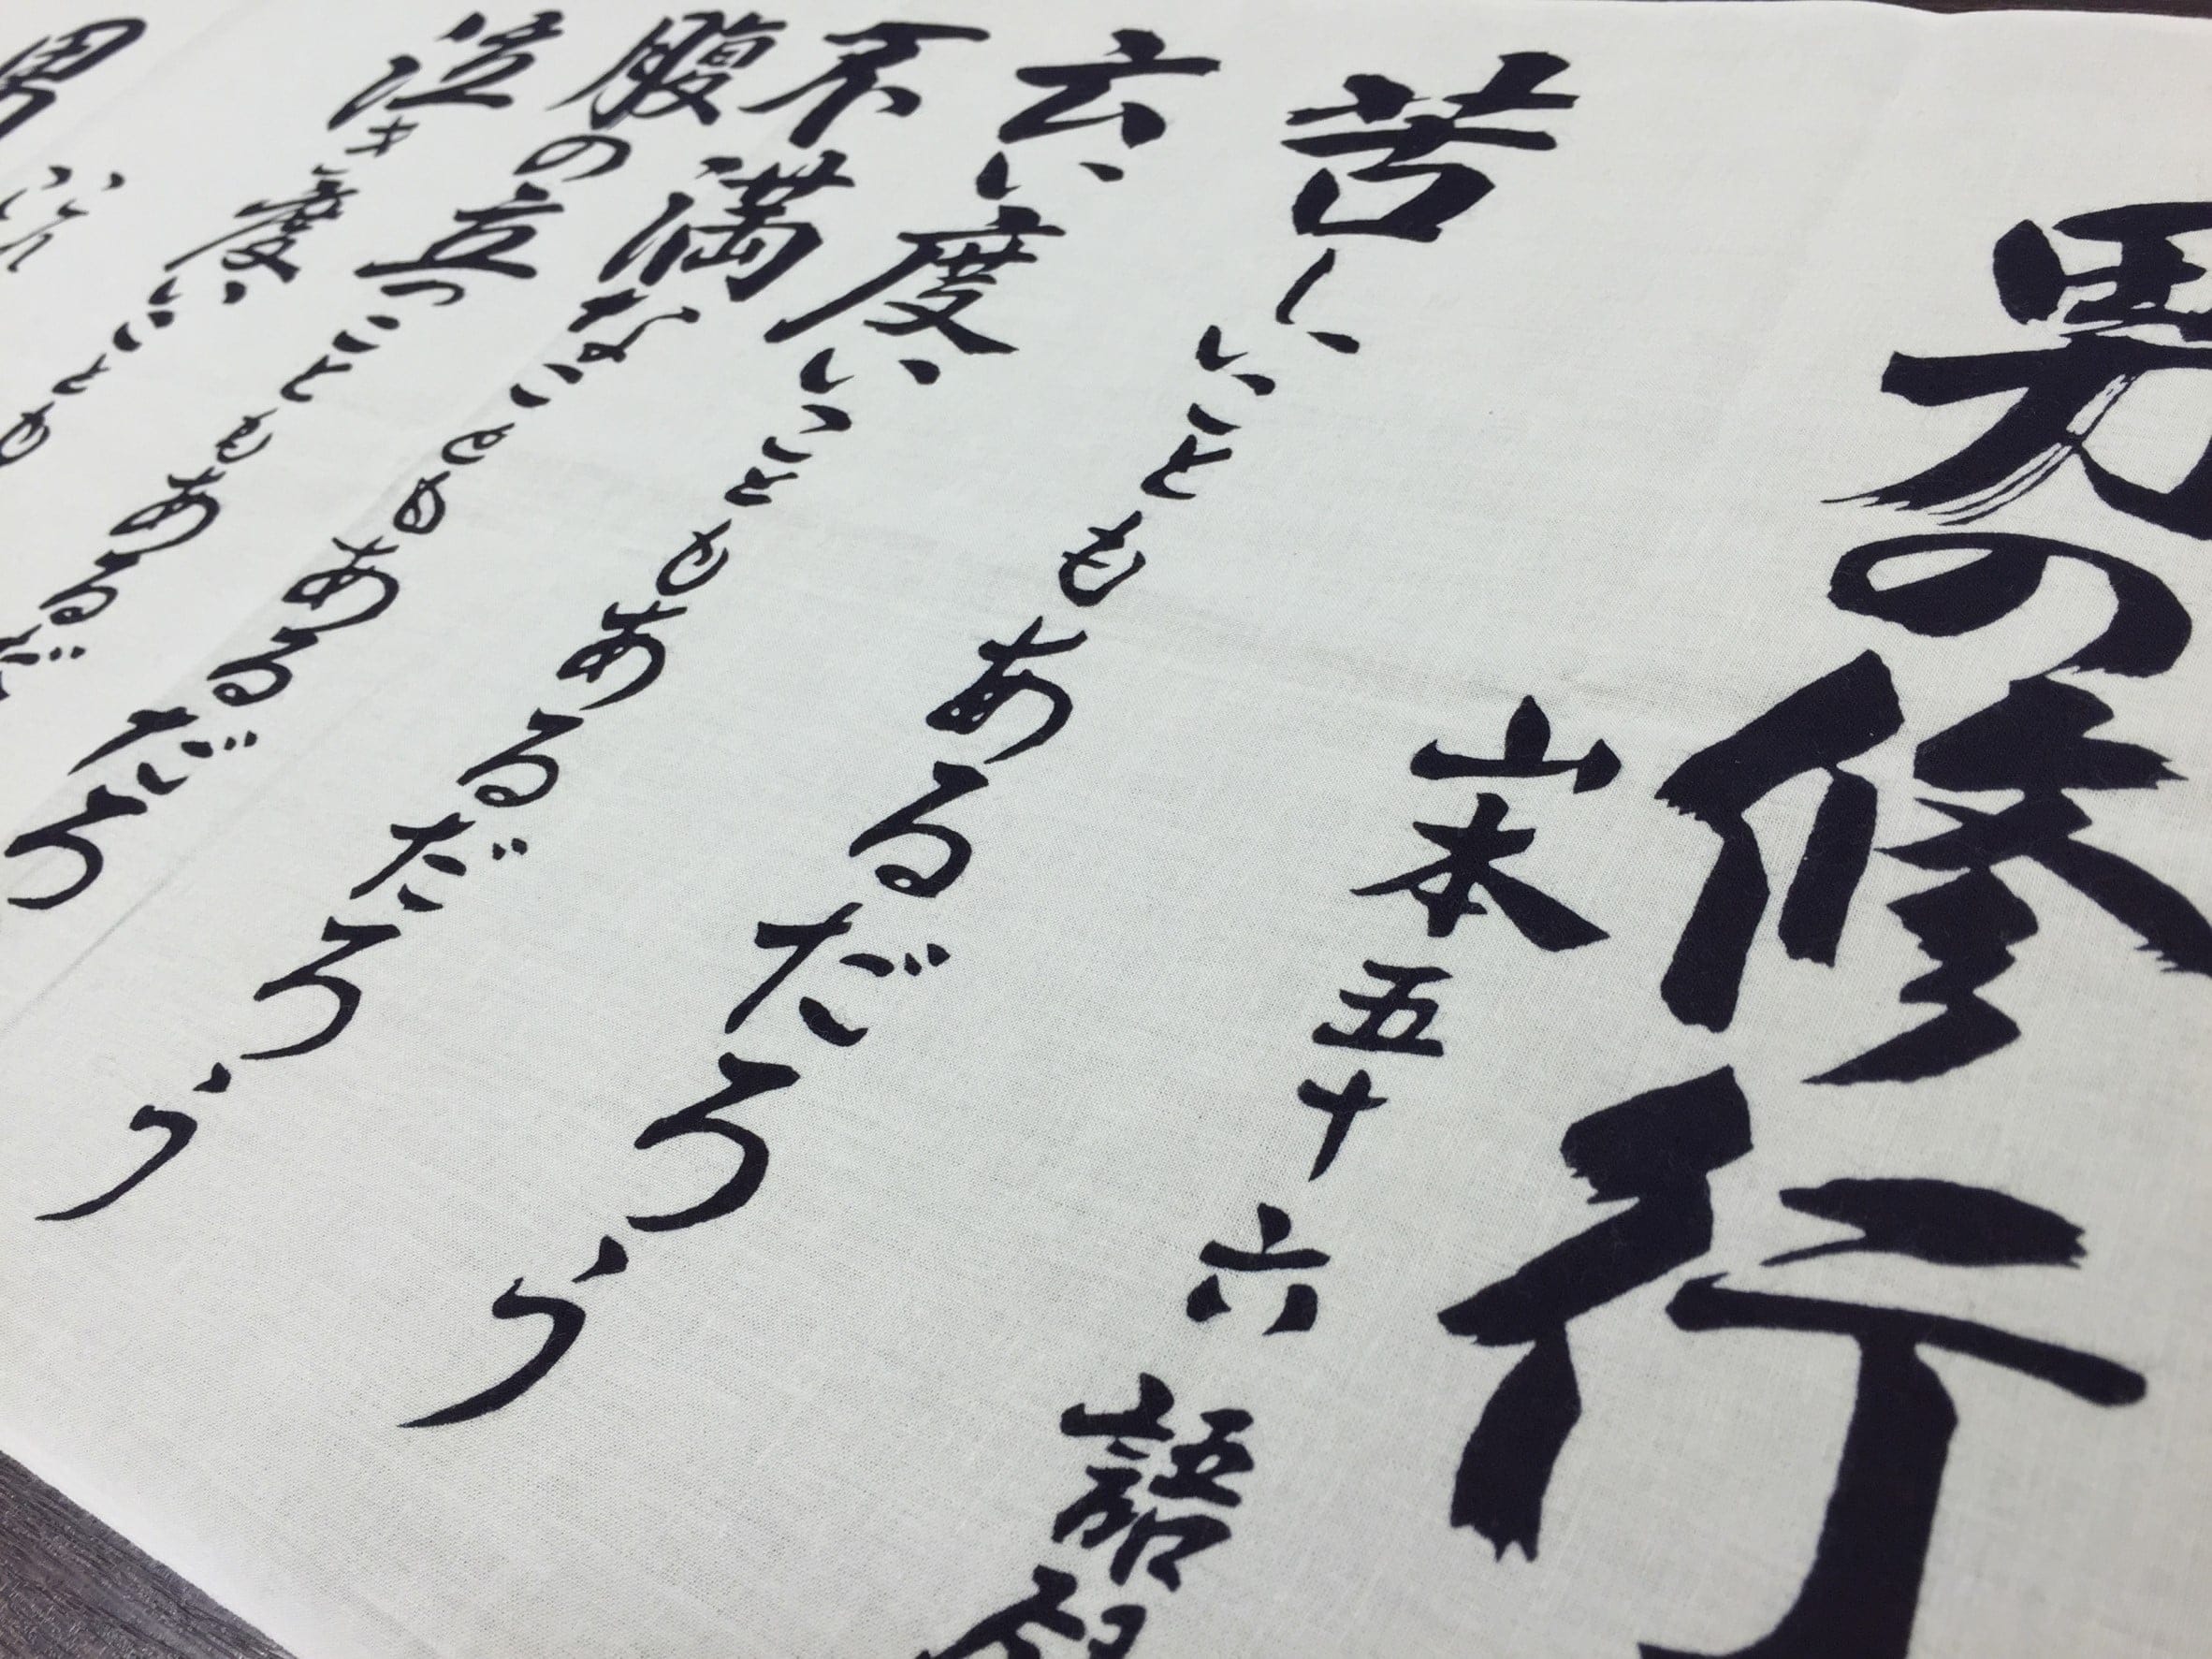 男の修行
山本五十六 語
苦しいこともあるだろう
云い度いこともあるだろう
不満なこともあるだろ
腹の立つこともあるだ
泣き度いことも
男